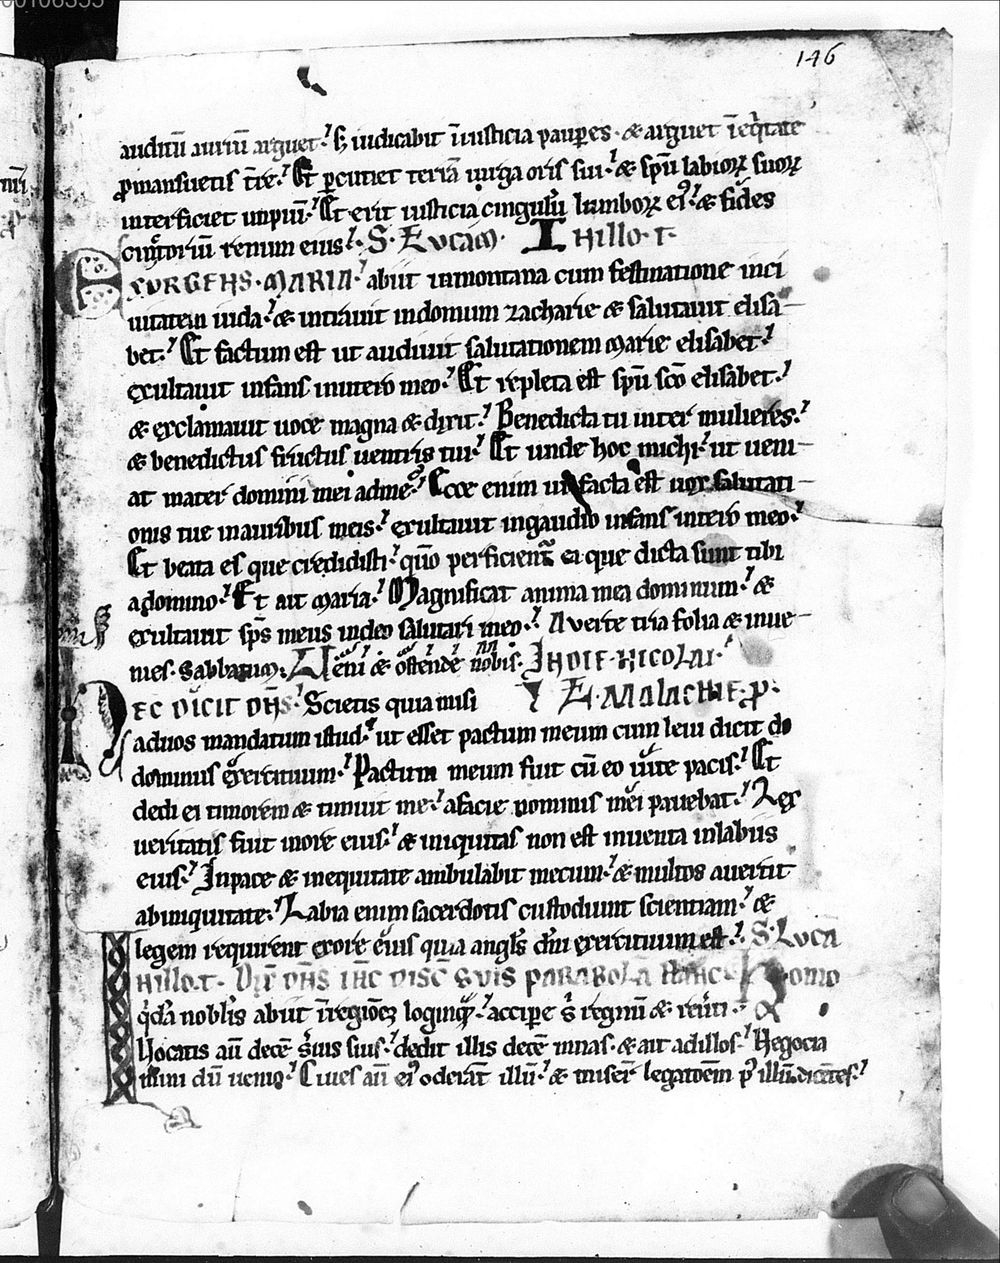 00106355
146
auditū auriū arguet. S; iudicabit ī iusticia paupes. & arguet ī eqͥtate
ꝓ mansuetis tr̄e. Et ꝑcutiet terrā uirga oris sui. & spū labioꝝ suoꝝ
interficiet impiū. Et erit iusticia cingulū lumboꝝ eiꝰ. & fides
cinctoriū renum eius. S. Eucam. In illo t.
Exurgens maria. abiit inmontana cum festinatione inci
uitatem iuda. & intrauit indomum zacharie & salutauit elisa
bet. Et factum est ut audiuit salutationem marie elisabet.
exultauit infans inutero meo. Et repleta est spū sc̄o elisabet.
& exclamauit uoce magna & dixit. Benedicta tu inter mulieres.
& benedictus fructus uentris tui. Et unde hoc michi. ut ueni
at mater domini mei adme. Ecce enim ut facta est uox salutati
onis tue inauribus meis. exultauit ingaudio infans inutero meo.
Et beata es que credidisti. qm̄ perficient̄ ea que dicta sunt tibi
adomino. Et ait maria. Magnificat anima mea dominum. &
exultauit sps̄ meus indeo salutari meo. Auerte tria folia & inue
nies. Sabbatum. Ueni & ostende nobis. In die nicolai.
Hec dicit dn̄s. Scietis quia misi L. Malachie. ꝓ.
aduos mandatum istud. ut esset pactum meum cum leui dicit do
dominus exercituum. Pactum meum fuit cū eo uite pacis. Et
dedi ei timorem & timuit me. afacie nominis mei pauebat. Lex
ueritatis fuit inore eius. & iniquitas non est inuenta inlabiis
eius. Inpace & inequitate ambulabit mecum. & multos auertit
abiniquitate. Labia enim sacerdotis custodiunt scientiam. &
legem requirent exore eius quia angls̄ dn̄i exercituum est. S. Lucā
In illo t. Dix̄ dn̄s ih̄c disc̄ suis parabolā hanc. Homo
qͥdā nobilis abiit ī regionē longinqͣ. accipe s̄ regnū & reūti.
Uocatis aū decē s̄uis suis. dedit illis decē mnas. & ait adillos. Negocia
mini dū uenio. Ciues aū eiꝰ oderāt illū. & miser̄ legationē pꝰ illū dicētes.